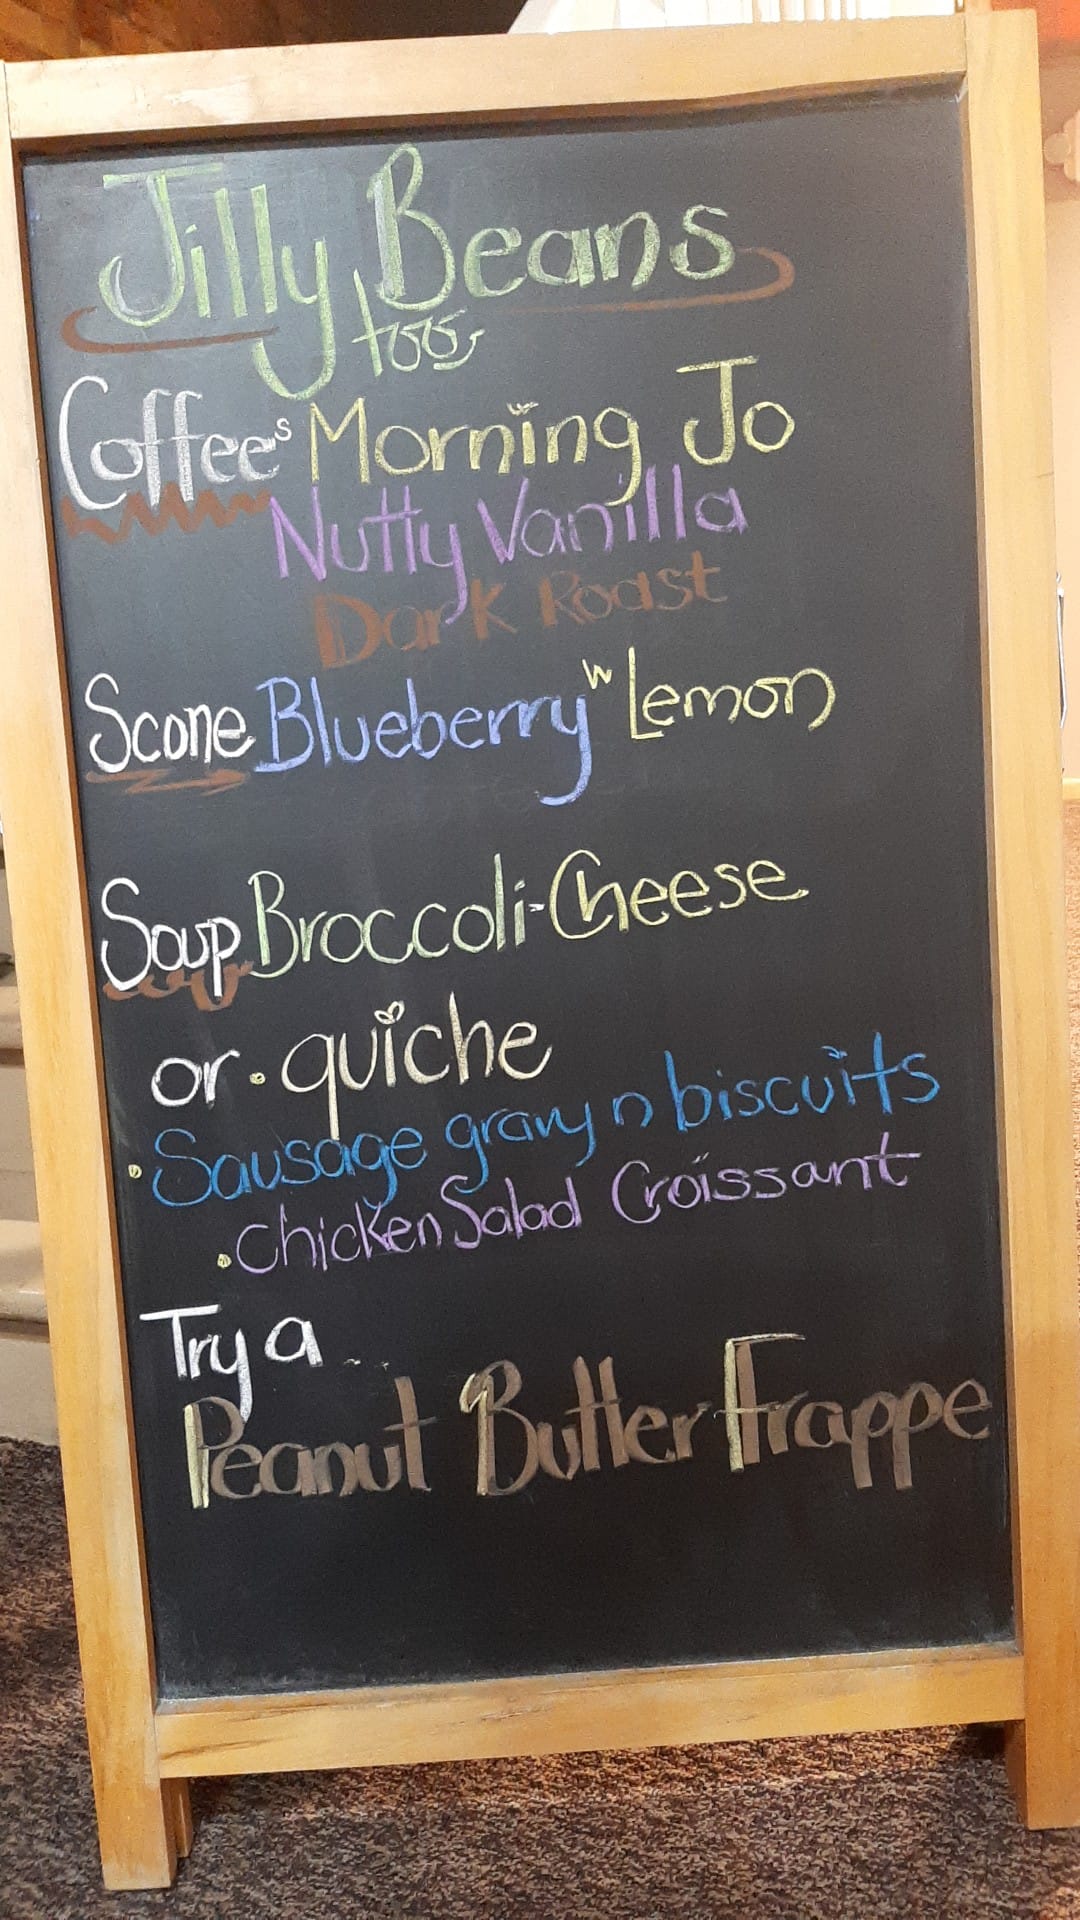 Jilly Beans
too
Coffees Morning Jo
Nutty Vanilla
Dark Roast
Scone Blueberry w Lemon
Soup Broccoli-Cheese
or • quiche
• Sausage gravy n biscuits
• Chicken Salad Croissant
Try a...
Peanut Butter Frappe